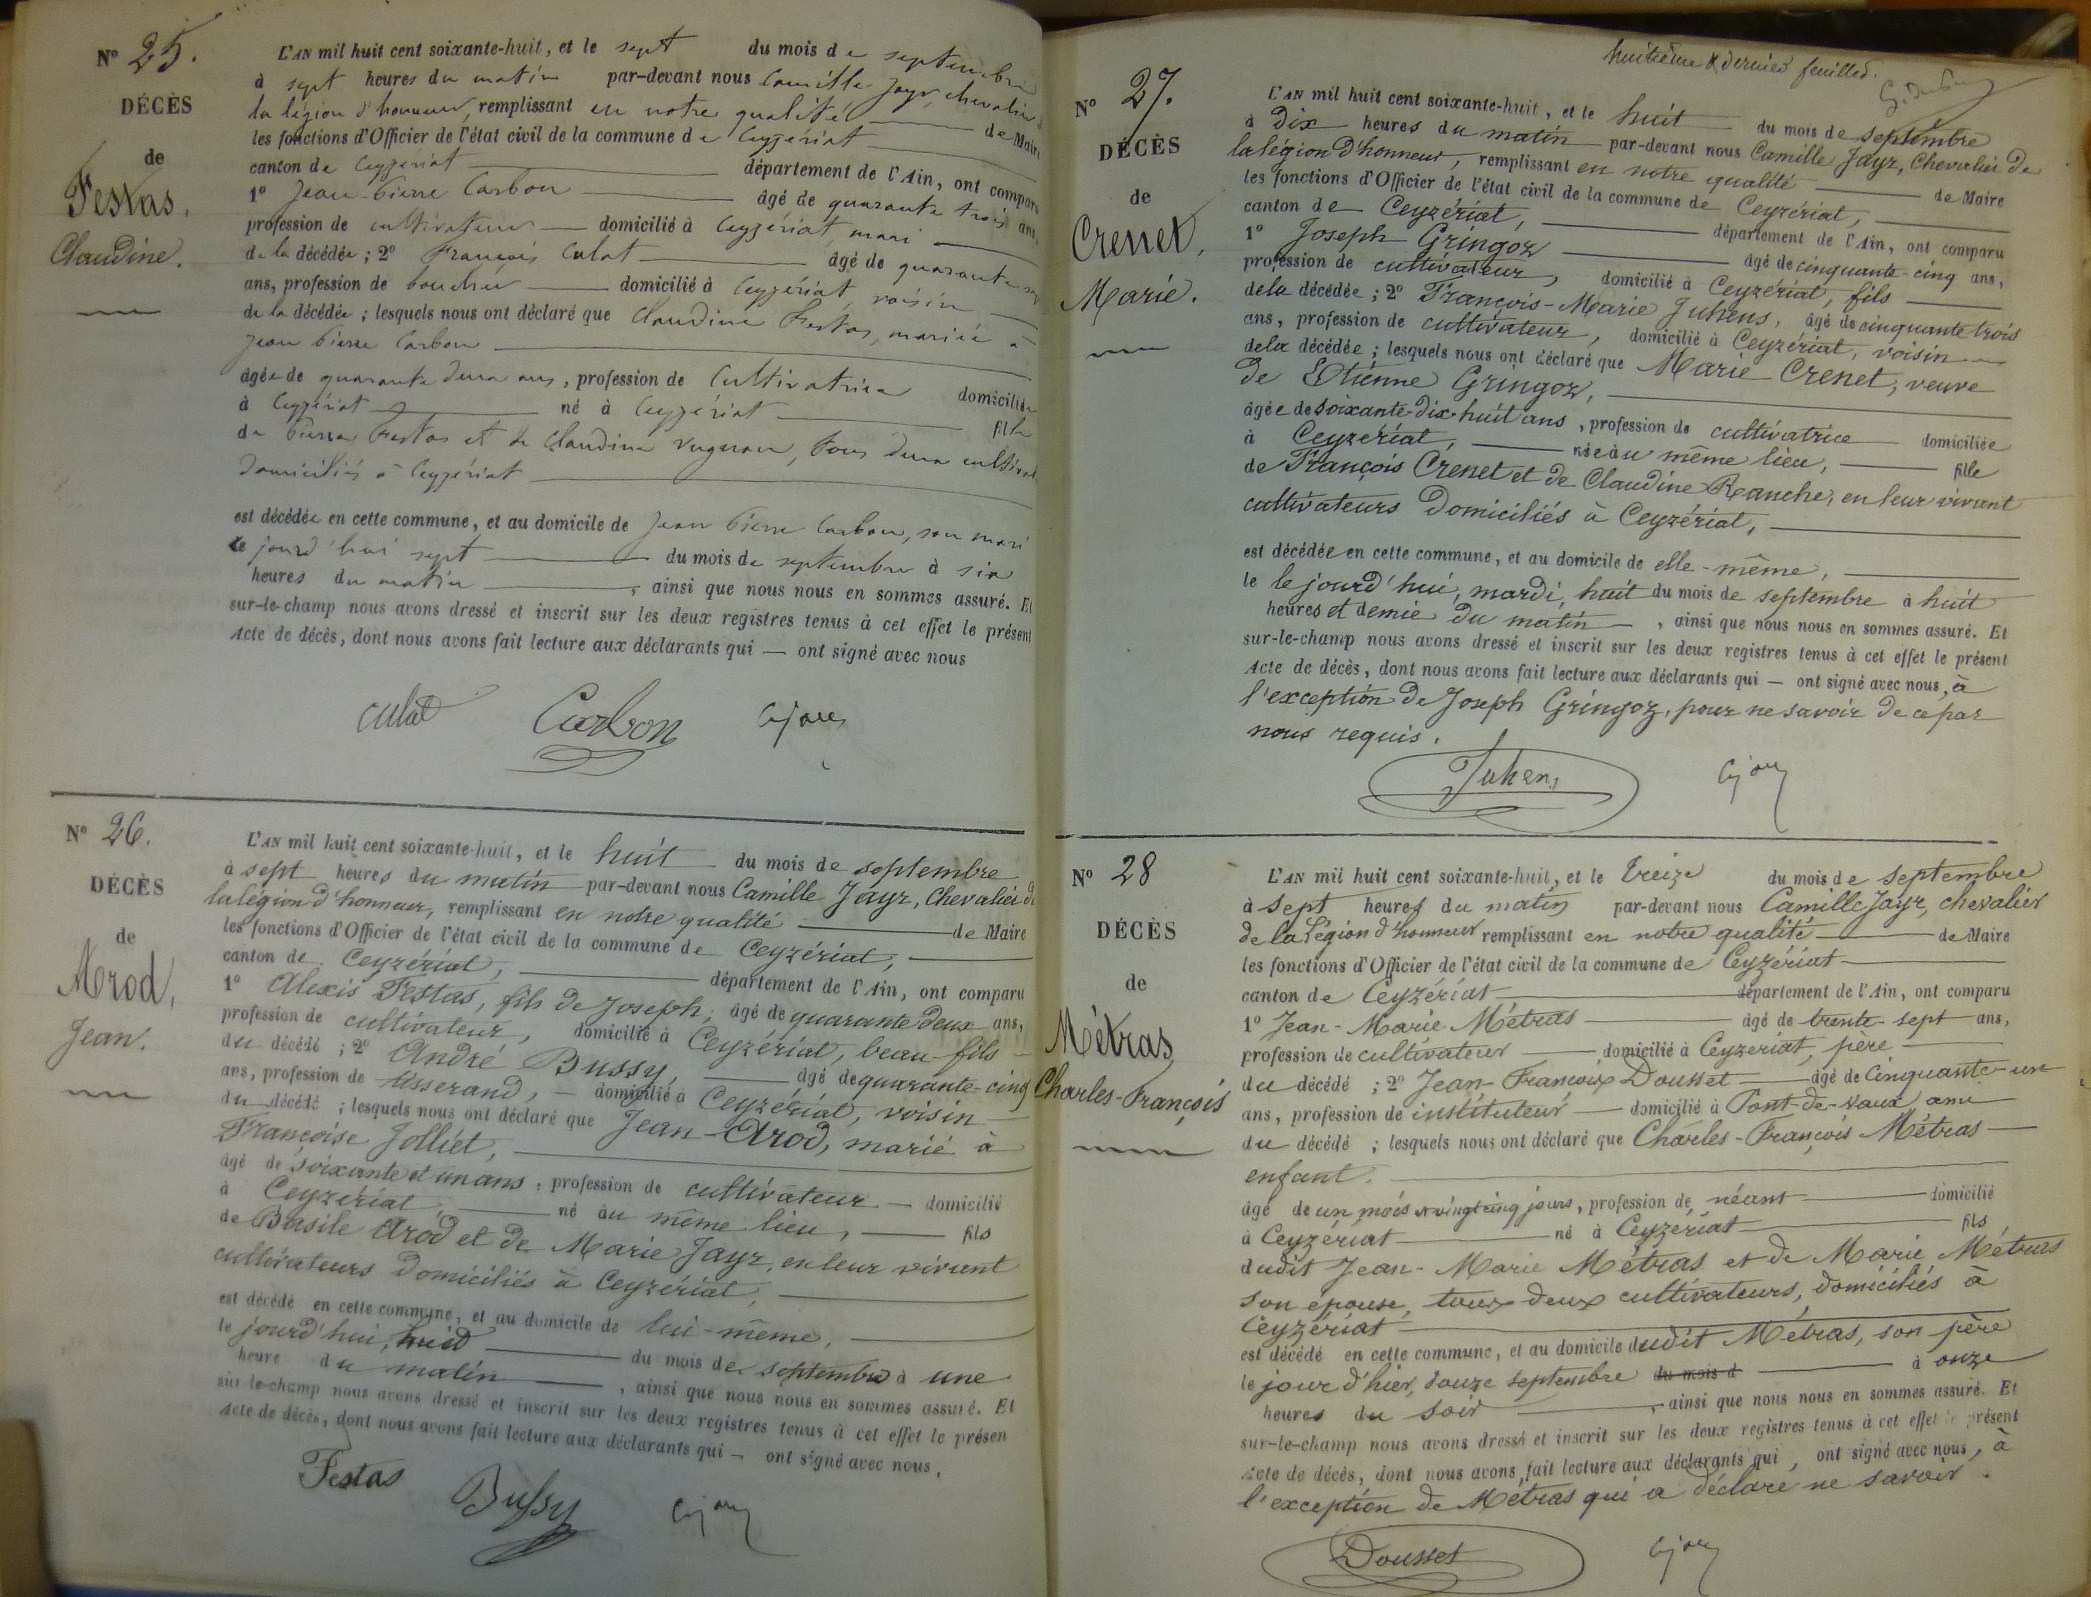 No 25.
DÉCÈS
de
Festas,
Claudine.
L'AN mil huit cent soixante-huit, et le sept du mois de septembre
à sept heures du matin par-devant nous Camille Jayr, chevalier
la légion d'honneur, remplissant en notre qualité de Maire
les fonctions d'Officier de l'état civil de la commune de Ceyzériat
canton de Ceyzériat département de l'Ain, ont comparu
1o Jean Pierre Carbon âgé de quarante trois ans,
profession de cultivateur domicilié à Ceyzériat, mari
de la décédée ; 2o François Culat âgé de quarante
ans, profession de boucher domicilié à Ceyzériat, voisin
de la décédée ; lesquels nous ont déclaré que Claudine Festas, mariée à
Jean Pierre Carbon
âgée de quarante deux ans, profession de Cultivatrice domiciliée
à Ceyzériat né à Ceyzériat fille
de Pierre Festas et de Claudine, tous deux
domiciliés à Ceyzériat
est décédée en cette commune, et au domicile de Jean Pierre Carbon, son mari
ce jourd'hui sept du mois de septembre à six
heures du matin, ainsi que nous nous en sommes assuré. Et
sur-le-champ nous avons dressé et inscrit sur les deux registres tenus à cet effet le présent
Acte de décès, dont nous avons fait lecture aux déclarants qui — ont signé avec nous
Culat Carbon
No 26.
DÉCÈS
de
Arod,
Jean.
L'AN mil huit cent soixante-huit, et le huit du mois de septembre
à sept heures du matin par-devant nous Camille Jayr, Chevalier de
la légion d'honneur, remplissant en notre qualité de Maire
les fonctions d'Officier de l'état civil de la commune de Ceyzériat,
canton de Ceyzériat, département de l'Ain, ont comparu
1o Alexis Festas, fils de Joseph, âgé de quarante deux ans,
profession de cultivateur, domicilié à Ceyzériat, beau-fils
du décédé ; 2o André Bussy, âgé de quarante-cinq
ans, profession de tisserand, domicilié à Ceyzériat, voisin
du décédé ; lesquels nous ont déclaré que Jean-Arod, marié à
Françoise Jolliet,
âgé de soixante et un ans, profession de cultivateur domicilié
à Ceyzériat, né au même lieu, fils
de Basile Arod et de Marie Jayr, en leur vivant
cultivateurs domiciliés à Ceyzériat,
est décédé en cette commune, et au domicile de lui-même,
le jourd'hui, huit du mois de septembre à une
heure du matin, ainsi que nous nous en sommes assuré. Et
sur-le-champ nous avons dressé et inscrit sur les deux registres tenus à cet effet le présen
Acte de décès, dont nous avons fait lecture aux déclarants qui — ont signé avec nous.
Festas Bussy
huitième & dernier feuillet.
No 27.
DÉCÈS
de
Crenet,
Marie.
L'AN mil huit cent soixante-huit, et le huit du mois de septembre
à Dix heures du matin par-devant nous Camille Jayr, Chevalier de
la légion d'honneur, remplissant en notre qualité de Maire
les fonctions d'Officier de l'état civil de la commune de Ceyzériat,
canton de Ceyzériat, département de l'Ain, ont comparu
1o Joseph Gringoz âgé de cinquante-cinq ans,
profession de cultivateur, domicilié à Ceyzériat, fils
de la décédée ; 2o François-Marie Juhens, âgé de cinquante trois
ans, profession de cultivateur, domicilié à Ceyzériat, voisin
de la décédée ; lesquels nous ont déclaré que Marie Crenet, veuve
de Etienne Gringoz,
âgée de soixante-dix-huit ans, profession de cultivatrice domiciliée
à Ceyzériat, née au même lieu, fille
de François Crenet et de Claudine Ranche, en leur vivant
cultivateurs domiciliés à Ceyzériat,
est décédée en cette commune, et au domicile de elle-même,
le le jourd'hui, mardi, huit du mois de septembre à huit
heures et demie du matin, ainsi que nous nous en sommes assuré. Et
sur-le-champ nous avons dressé et inscrit sur les deux registres tenus à cet effet le présent
Acte de décès, dont nous avons fait lecture aux déclarants qui — ont signé avec nous, à
l'exception de Joseph Gringoz, pour ne savoir de ce par
nous requis.
Juhens
No 28
DÉCÈS
de
Métras
Charles-François
L'AN mil huit cent soixante-huit, et le treize du mois de septembre
à sept heures du matin par-devant nous Camille Jayr, chevalier
de la Légion d'honneur remplissant en notre qualité de Maire
les fonctions d'Officier de l'état civil de la commune de Ceyzériat
canton de Ceyzériat département de l'Ain, ont comparu
1o Jean-Marie Métras âgé de trente-sept ans,
profession de cultivateur domicilié à Ceyzériat, père
du décédé ; 2o Jean-François Dousset âgé de cinquante-un
ans, profession de instituteur domicilié à Pont-de-Vaux ami
du décédé ; lesquels nous ont déclaré que Charles-François Métras
enfant.
âgé de un mois et vingt cinq jours, profession de néant domicilié
à Ceyzériat né à Ceyzériat fils
dudit Jean-Marie Métras et de Marie Métras
son épouse, tous deux cultivateurs, domiciliés à
Ceyzériat
est décédé en cette commune, et au domicile dudit Métras, son père
le jour d'hier, douze septembre du mois d à onze
heures du soir, ainsi que nous nous en sommes assuré. Et
sur-le-champ nous avons dressé et inscrit sur les deux registres tenus à cet effet le présent
Acte de décès, dont nous avons fait lecture aux déclarants qui, ont signé avec nous, à
l'exception de Métras qui a déclaré ne savoir.
Dousset